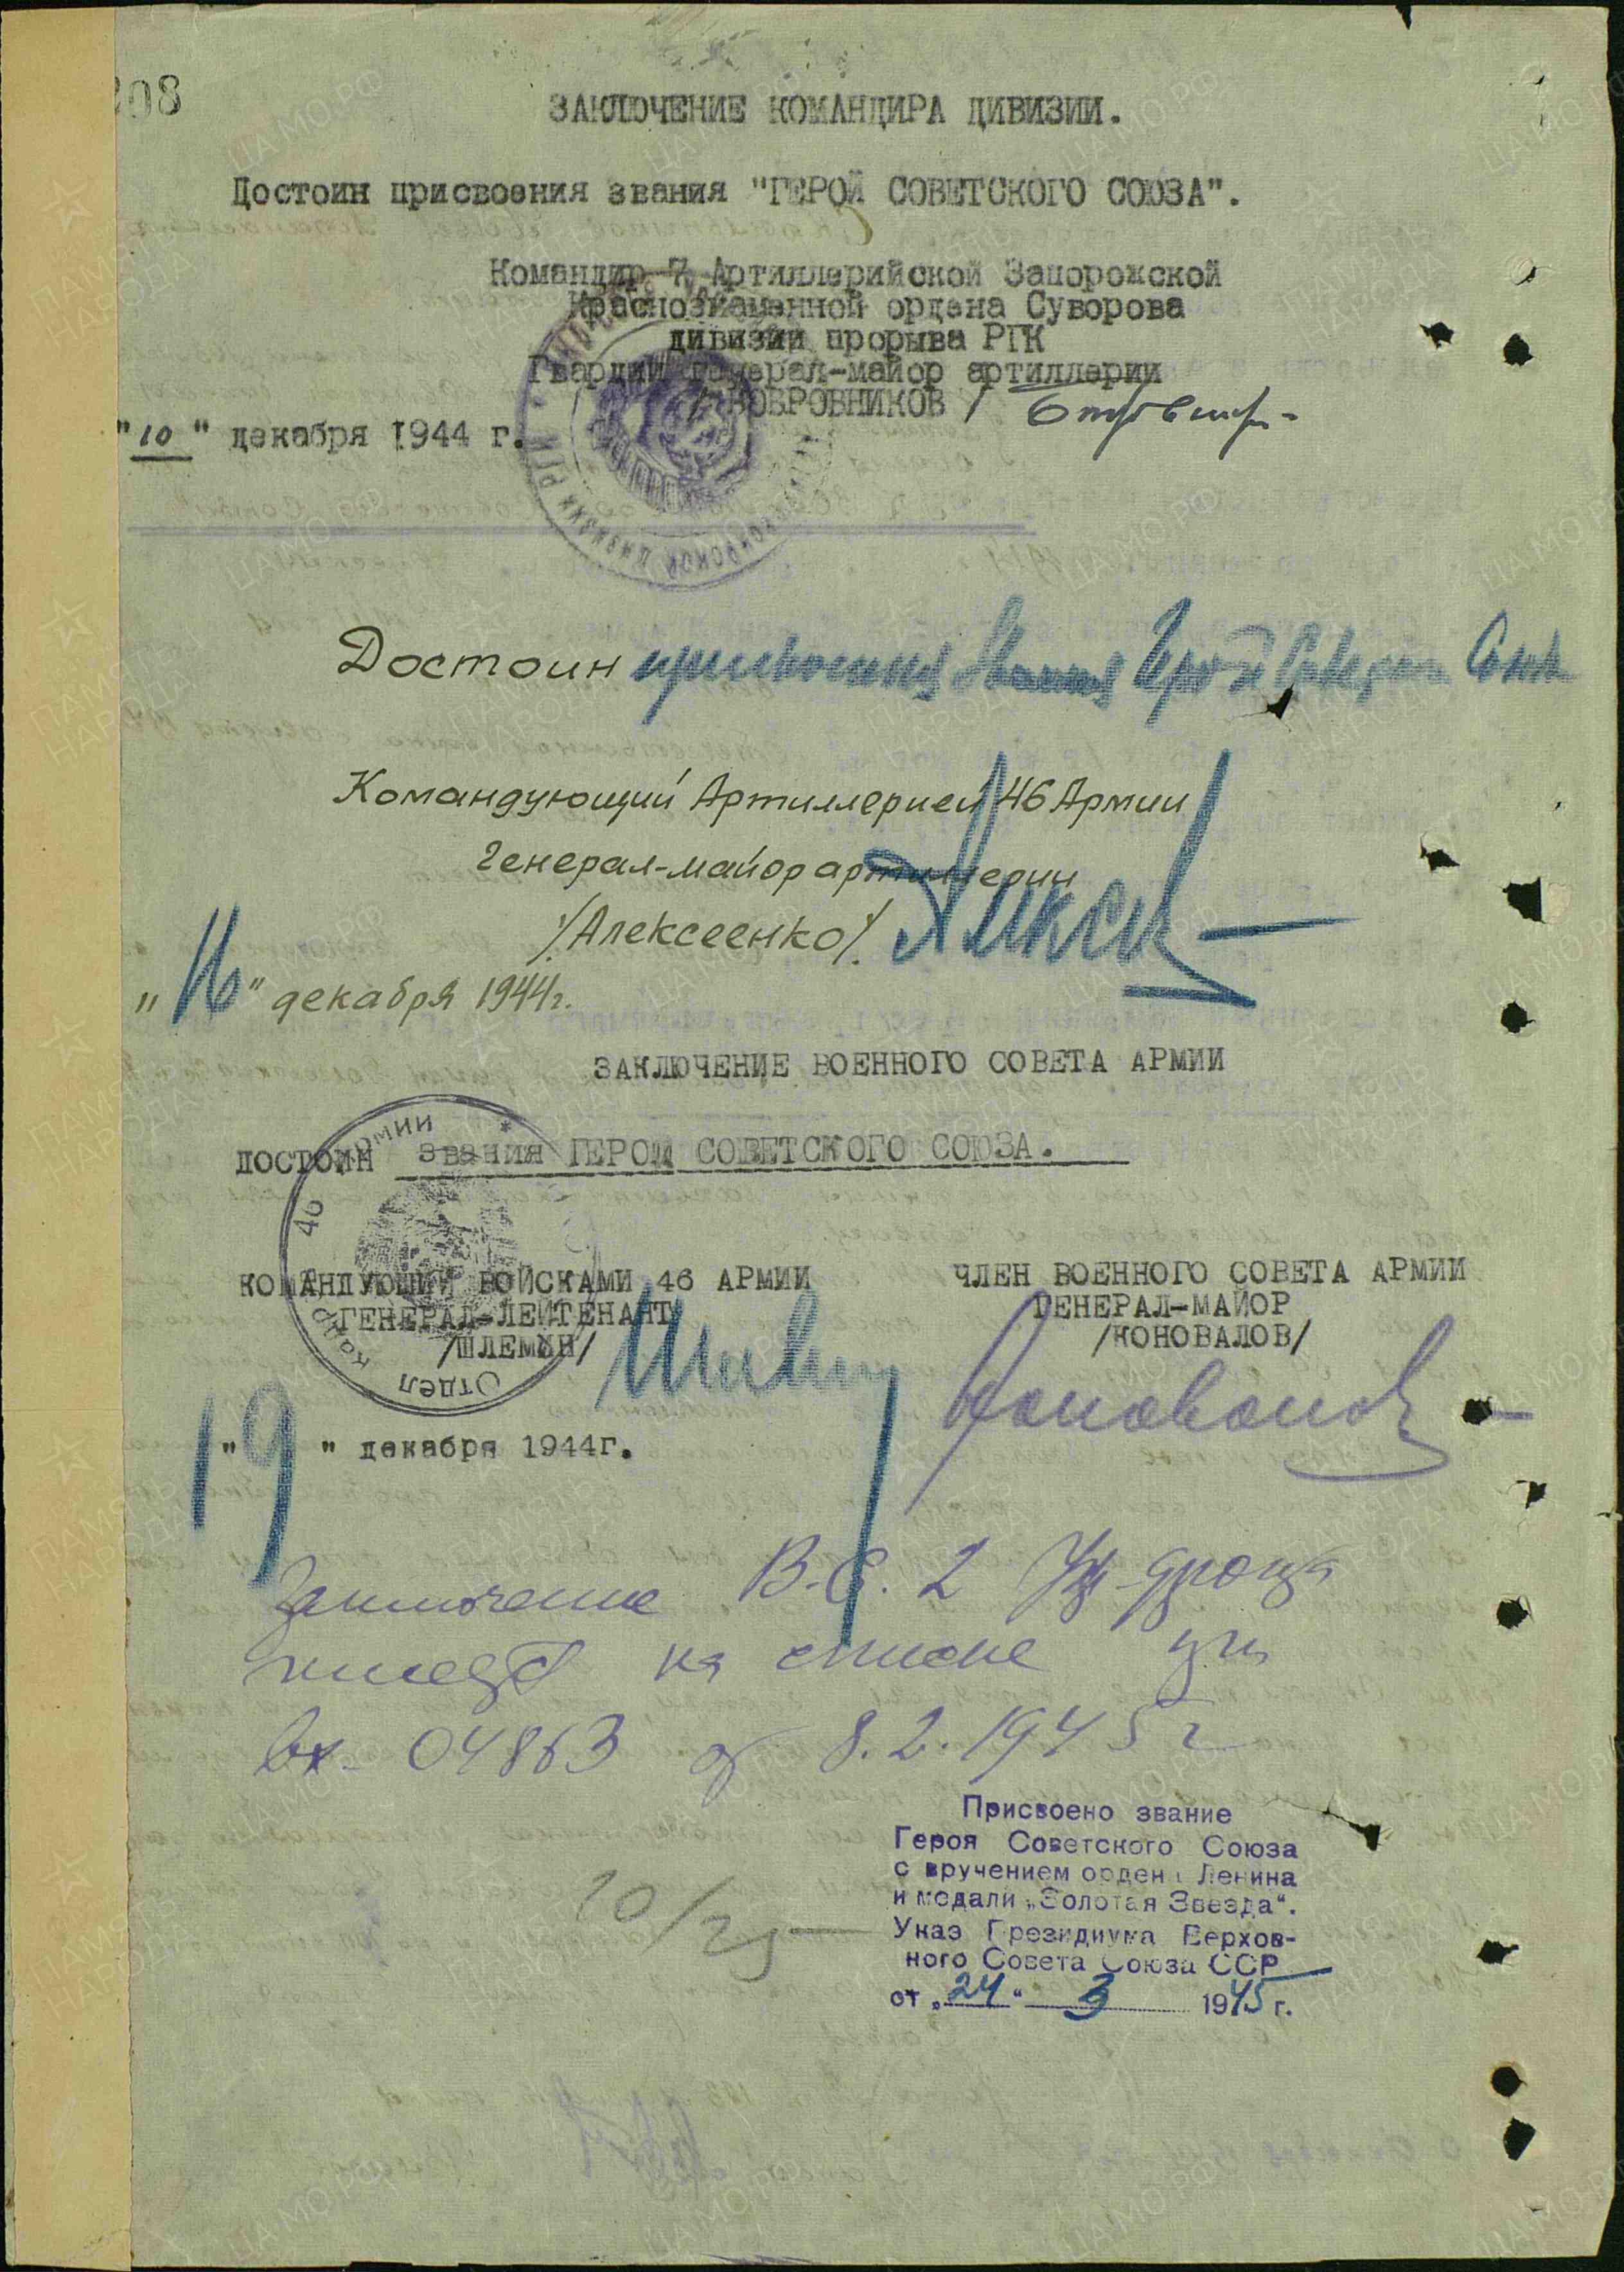 208
ЗАКЛЮЧЕНИЕ КОМАНДИРА ДИВИЗИИ.
Достоин присвоения звания "ГЕРОЙ СОВЕТСКОГО СОЮЗА".
Командир 7 Артиллерийской Запорожской
Краснознаменной ордена Суворова
дивизии прорыва РГК
Гвардии генерал-майор артиллерии
/ БОБРОВНИКОВ /
"10" декабря 1944 г.
Достоин присвоения звания Герой Советского Союза
Командующий Артиллерией 46 Армии
Генерал-майор артиллерии
/Алексеенко/.
"16" декабря 1944г.
ЗАКЛЮЧЕНИЕ ВОЕННОГО СОВЕТА АРМИИ
ДОСТОИН звания ГЕРОЯ СОВЕТСКОГО СОЮЗА.
46 Армии
Отдел
КОМАНДУЮЩИЙ ВОЙСКАМИ 46 АРМИИ
ГЕНЕРАЛ-ЛЕЙТЕНАНТ
/ШЛЕМИН/
ЧЛЕН ВОЕННОГО СОВЕТА АРМИИ
ГЕНЕРАЛ-МАЙОР
/КОНОВАЛОВ/
Коновалов
"19" декабря 1944г.
Заключение В.С. 2 Укр. фронта
имеется на списке
вх. 04863 от 8.2.1945 г
Присвоено звание
Героя Советского Союза
с вручением ордена Ленина
и медали „Золотая Звезда“.
Указ Президиума Верхов-
ного Совета Союза ССР
от „24“ 3 1945 г.